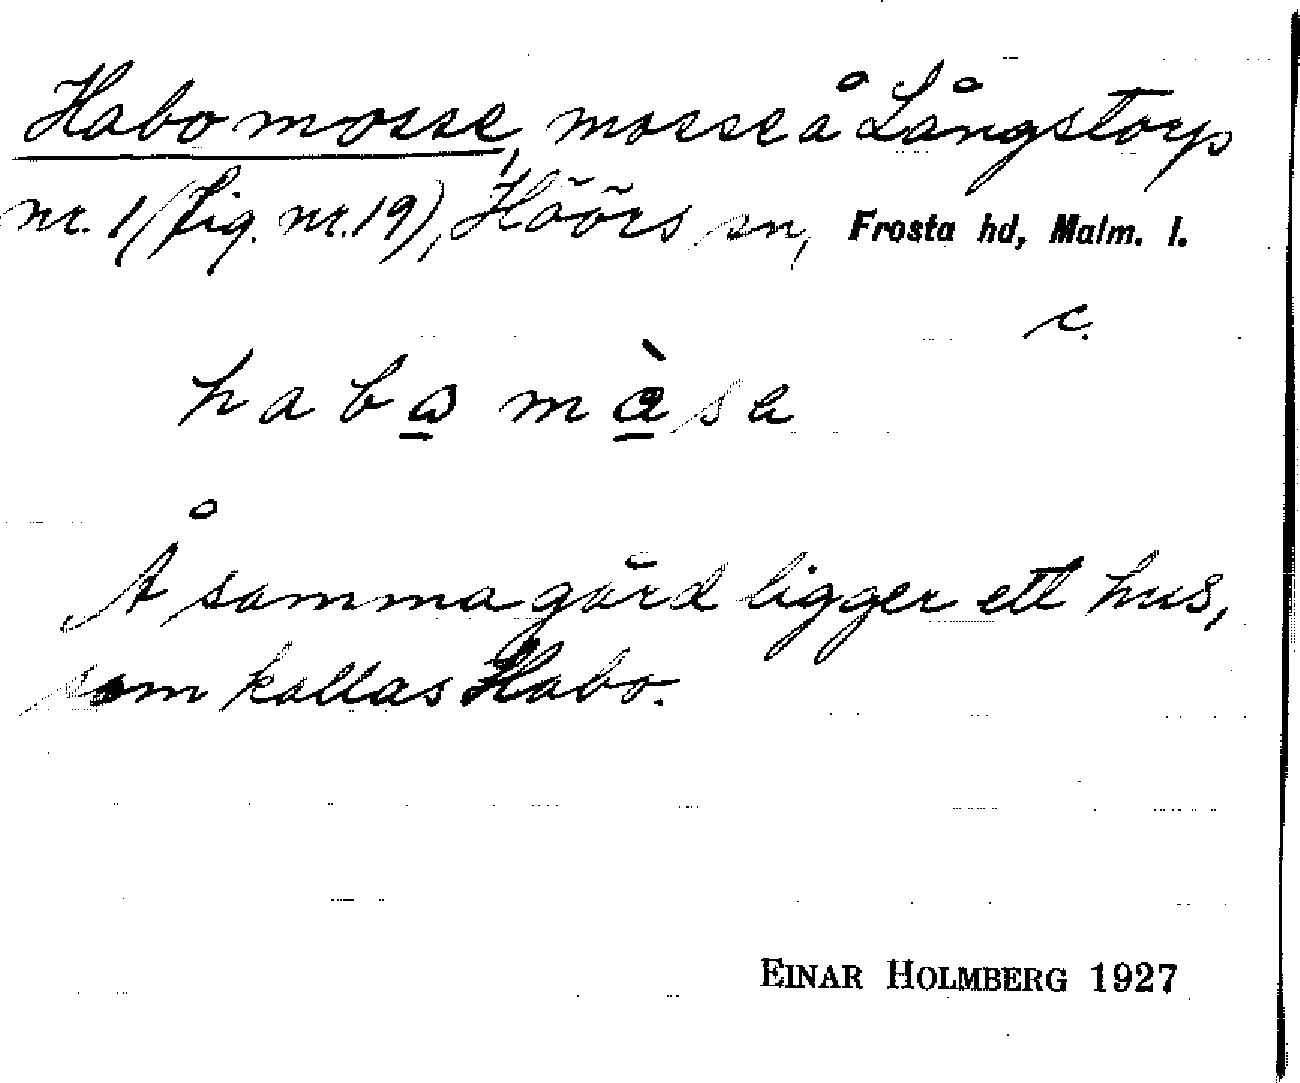 Habo mosse, mosse å Långstorp
nr. 1 (fig. nr. 19), Höörs sn, Frosta hd, Malm. l.
c.
Å samma gård ligger ett hus,
som kallas Habo.
EINAR HOLMBERG 1927